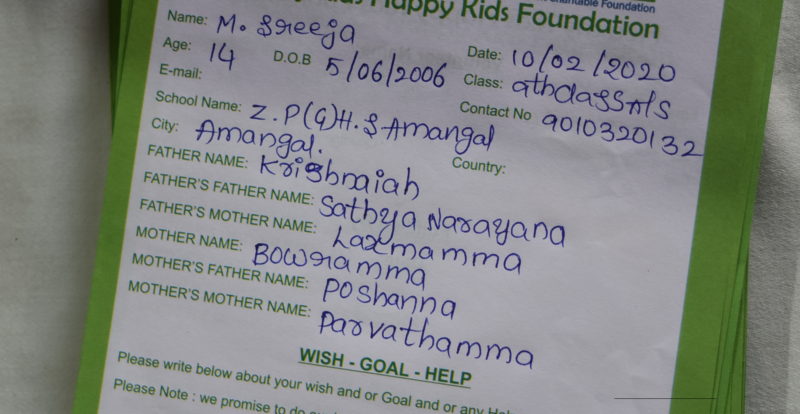 Charitable Foundation
Happy Kids Foundation
Name: M. Sreeja
Date: 10/02/2020
Age: 14 D.O.B 5/06/2006 Class: 9th class A/s
E-mail:
Contact No 9010320132
School Name: Z.P(G)H.S Amangal
City: Amangal.
Country:
FATHER NAME: Krishnaiah
FATHER'S FATHER NAME: Sathya Narayana
FATHER'S MOTHER NAME: Laxmamma
MOTHER NAME: Bowramma
MOTHER'S FATHER NAME: Poshanna
MOTHER'S MOTHER NAME: Parvathamma
WISH - GOAL - HELP
Please write below about your wish and or Goal and or any
Please Note : we promise to do